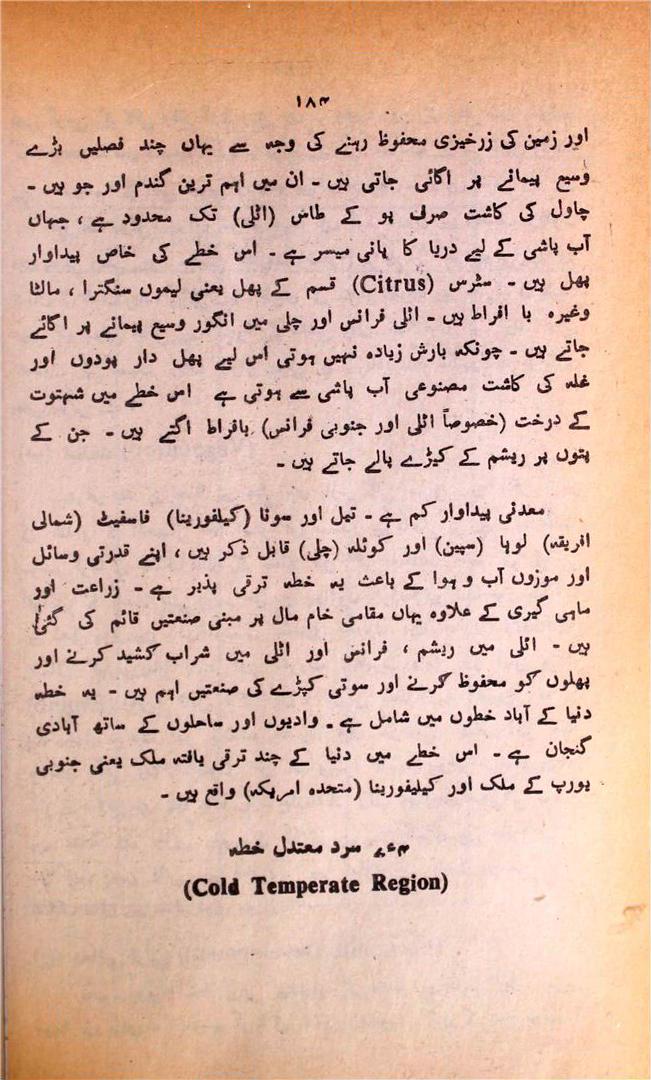 ۱۸۴
اور زمین کی زرخیزی محفوظ رہنے کی وجہ سے یہاں چند فصلیں بڑے
وسیع پیمانے پر اگائی جاتی ہیں ۔ ان میں اہم ترین گندم اور جو ہیں ۔
چاول کی کاشت صرف پو کے طاس (اٹلی) تک محدود ہے ، جہاں
آب پاشی کے لیے دریا کا پانی میسر ہے ۔ اس خطے کی خاص پیداوار
پھل ہیں ۔ سٹرس (Citrus) قسم کے پھل یعنی لیموں سنگترا ، مالٹا
وغیرہ با افراط ہیں ۔ اٹلی فرانس اور چلی میں انگور وسیع پیمانے پر اگائے
جاتے ہیں ۔ چونکہ بارش زیادہ نہیں ہوتی اس لیے پھل دار پودوں اور
غلہ کی کاشت مصنوعی آب پاشی سے ہوتی ہے اس خطے میں شہتوت
کے درخت (خصوصاً اٹلی اور جنوبی فرانس) بافراط اگتے ہیں ۔ جن کے
پتوں پر ریشم کے کیڑے پالے جاتے ہیں ۔
معدنی پیداوار کم ہے ۔ تیل اور سونا (کیلفورینا) فاسفیٹ (شمالی
افریقہ) لوہا (سپین) اور کوئلہ (چلی) قابل ذکر ہیں ، اپنے قدرتی وسائل
اور موزوں آب و ہوا کے باعث یہ خطہ ترقی پذیر ہے ۔ زراعت اور
ماہی گیری کے علاوہ یہاں مقامی خام مال پر مبنی صنعتیں قائم کی گئی
ہیں ۔ اٹلی میں ریشم ، فرانس اور اٹلی میں شراب کشید کرنے اور
پھلوں کو محفوظ کرنے اور سوتی کپڑے کی صنعتیں اہم ہیں ۔ یہ خطہ
دنیا کے آباد خطوں میں شامل ہے ۔ وادیوں اور ساحلوں کے ساتھ آبادی
گنجان ہے ۔ اس خطے میں دنیا کے چند ترقی یافتہ ملک یعنی جنوبی
یورپ کے ملک اور کیلیفورینا (متحدہ امریکہ) واقع ہیں ۔
سرد معتدل خطہ
(Cold Temperate Region)